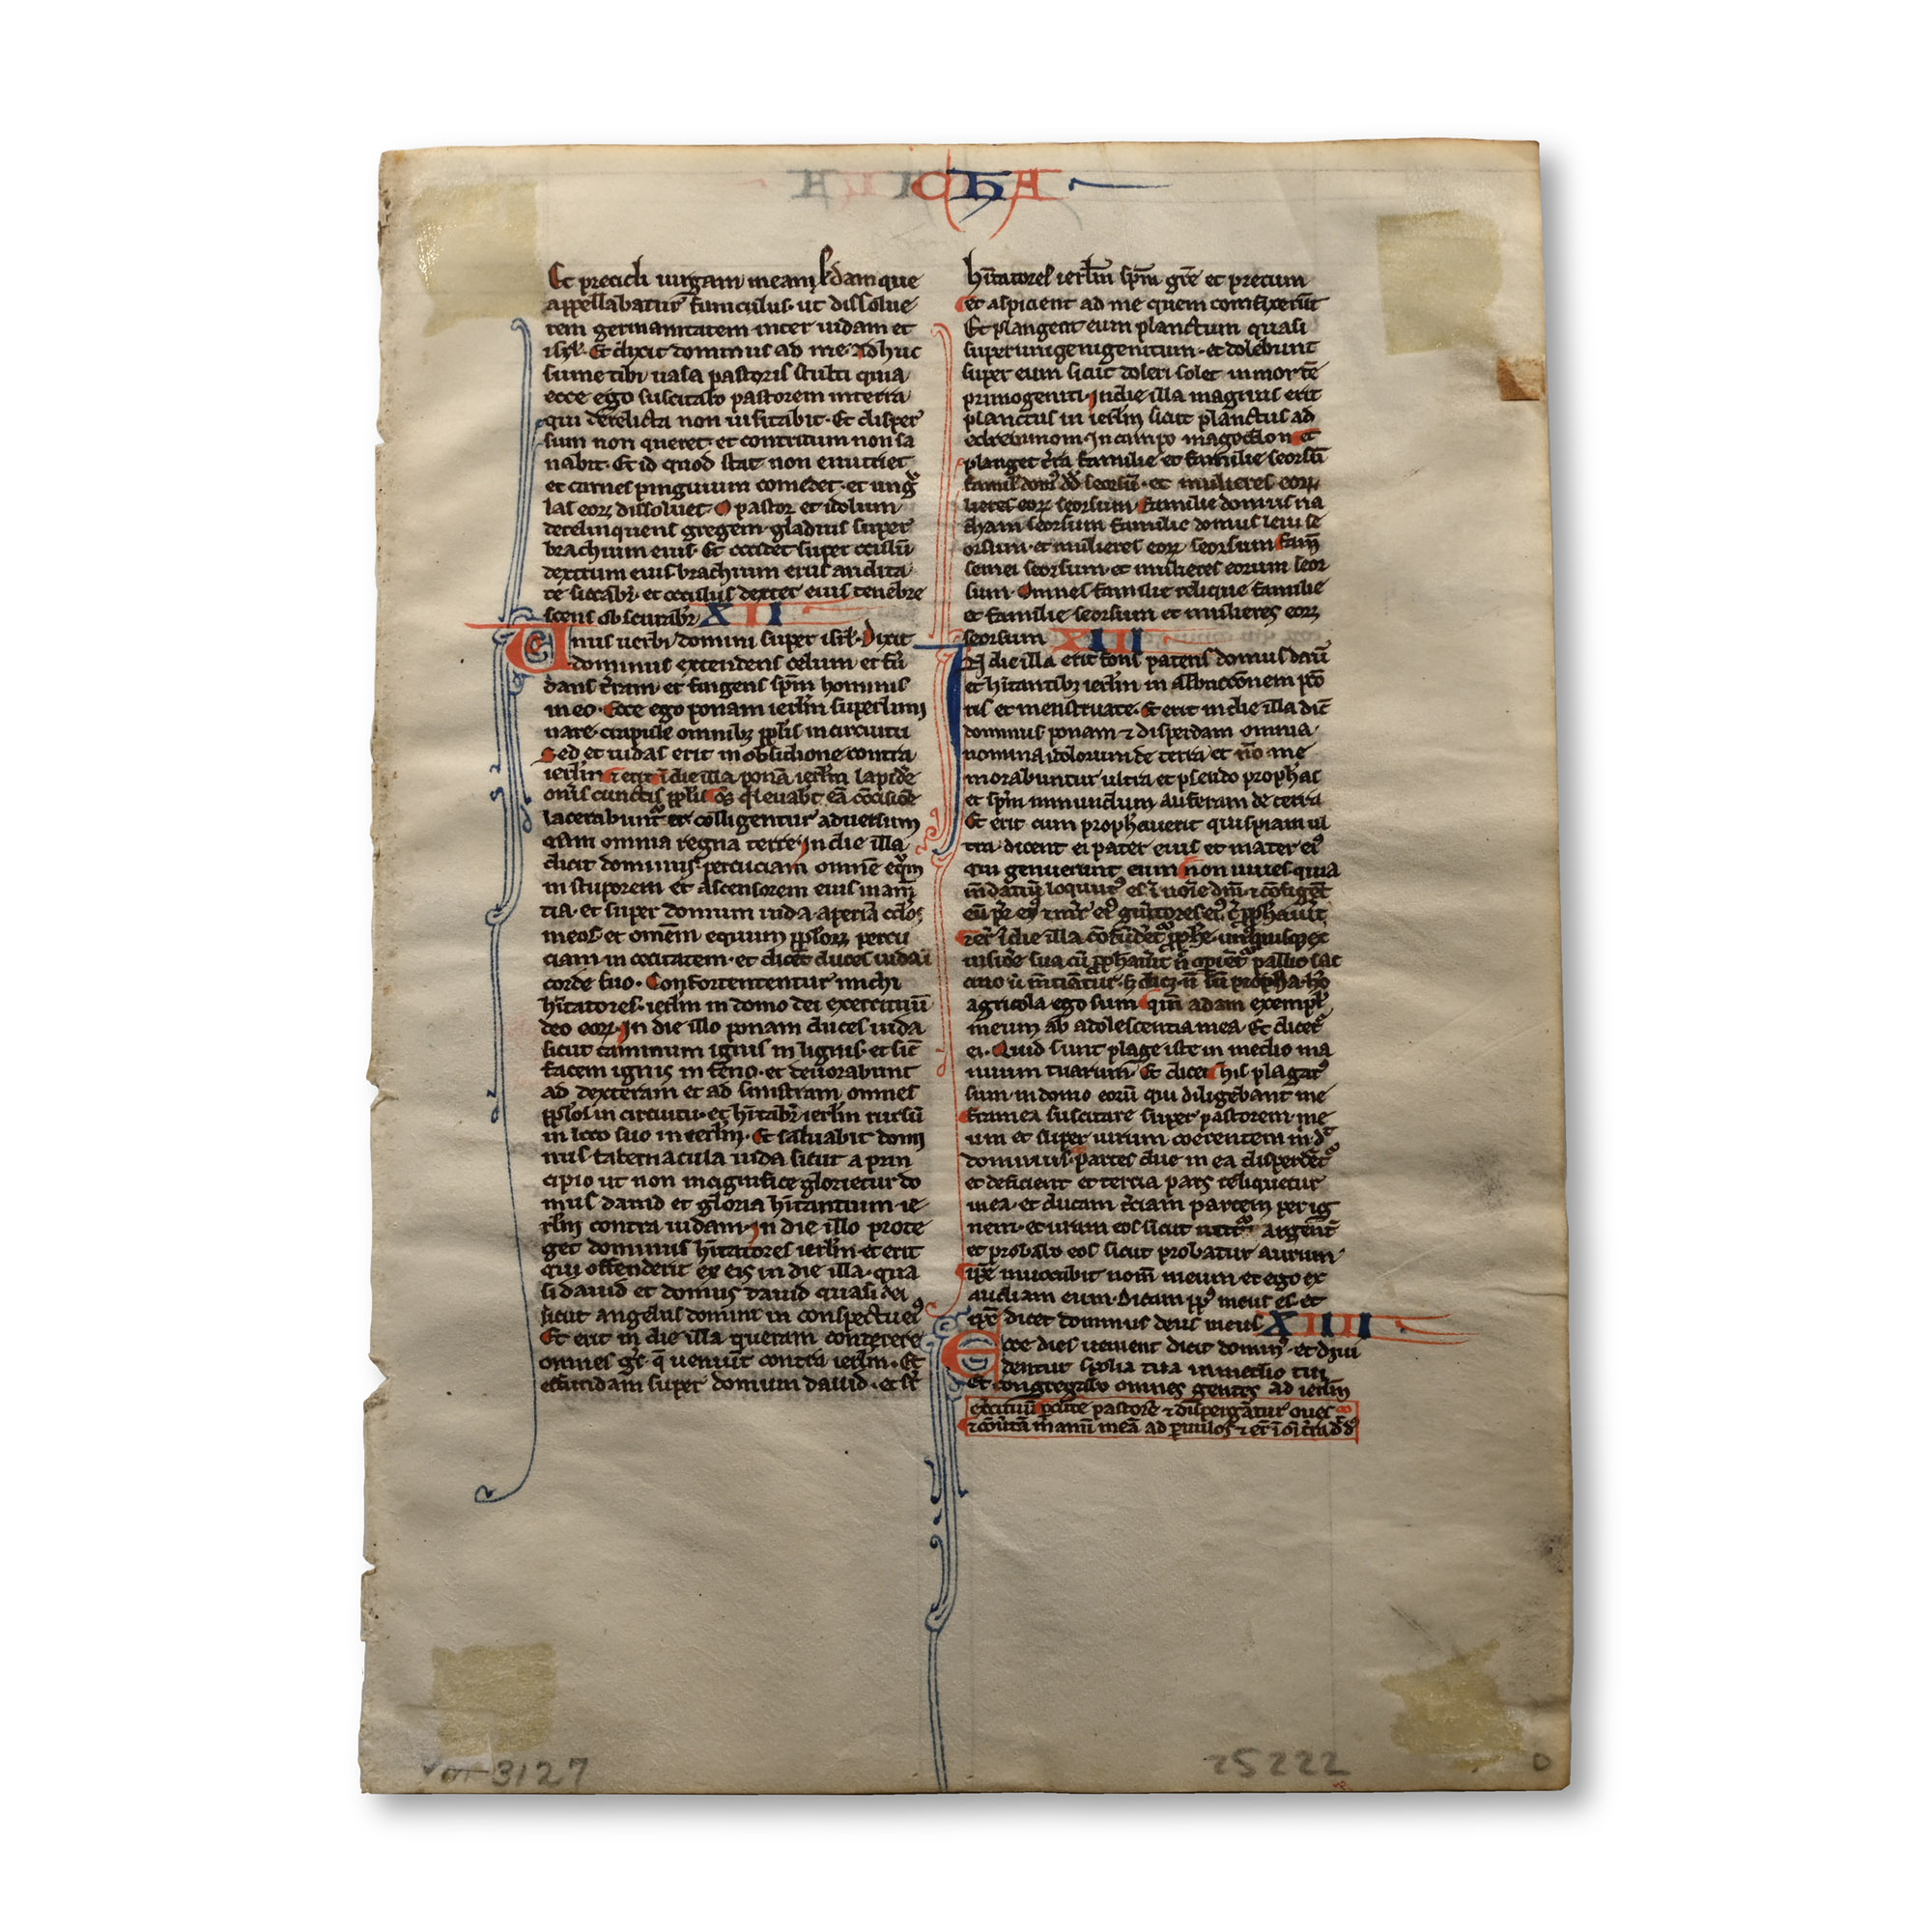 CHA
Et precidi uirgam meam scdam que
appellabatur funiculus· ut dissolue
rem germanitatem inter iudam et
isrl'· Et dixit dominus ad me Adhuc
sume tibi uasa pastoris stulti quia
ecce ego suscitabo pastorem in terra
qui derelicta non uisitabit· Et disper
sum non queret· et contritum non sa
nabit· Et id quod stat non enutriet
et carnes pinguium comedet· et ungu
las eorꝝ dissoluet· O pastor et idolum
derelinquens gregem· gladius super
brachium eius· Et super oculū
dextrum eius brachium eius aridita
te siccabr̄· et occulus dexter eius tenebre
scens obscurabr̄ XII
Onus uerbi domini super isrl'· Dixit
dominus extendens celum et fū
dans t̄ram et fingens sp̄m hominis
in eo· Ecce ego ponam ierl̄m superlimi
nare· crapule omnibꝫ ppl̄is in circuitu
Sed et iudas erit in obsidione contra
ierl̄m ⁊ erit ī die illa ponā ierl̄m lapidē
on̄is cunctis ppl̄is om̄s q̄ leuabt̄ eā cōcisiōe
lacerabunt̄ et colligentur aduersum
eam omnia regna terre· In die illa
dicit dominus percuciam omnē eqūm
in stuporem et ascensorem eius in am̄
tia· et super domum iuda aperiā oc̄los
meos· et om̄em equum ppl̄orꝝ percu
ciam in cecitatem· et dicēt duces iuda ī
corde suo· Confortententur michi
hītatores· ierl̄m in domo dei exercituū
deo eorꝝ· In die illo ponam duces iuda
sicut caminum ignis in lignis· et sic̄
facem ignis in feno· et deuorabunt
ad dexteram et ad sinistram omnes
ppl̄os in circuitu· et hītabr̄ ierl̄m rursū
in loco suo in ierl̄m· Et saluabit domi
nus tabernacula iuda sicut a prin
cipio ut non magnifice glorietur do
mus dauid et gloria hītantium ie
rl̄m contra iudam· In die illo prote
get dominus hītatores ierl̄m· et erit
qui offenderit ex eis in die illa· qua
si dauid et domus dauid quasi dei
sicut angelus domini in conspectu eiꝰ
Et erit in die illa queram conterere
omnes gēs q̄ ueniūt contra ierl̄m· Et
effundam super domum dauid· et sr̄
hītatores ierl̄m sp̄m gr̄e et precum
et aspicient ad me quem confixerūt
Et plangent eum planctum quasi
super unigenigenitum· et dolebunt
super eum sicut doleri solet in mortē
primogeniti· In die illa magnus erit
planctus in ierl̄m sicut planctus ad
adremmon· In campo mageddon et
planget t̄ra familie et familie seorsū
famil' domꝰ dd̄ seorsū· et mulieres eorꝝ
lieres eorꝝ seorsum· familie domus na
tham seorsum familie domus leui se
orsum· et mulieres eorꝝ seorsum fam̄
semei seorsum· et mulieres eorum seor
sum· Omnes familie relique familie
et familie seorsum et mulieres eorꝝ
seorsum XIII
IN die illa erit fons patens domus dauid
et hītantibꝫ ierl̄m in ablucōnem pcō
ris et menstruate· Et erit in die illa dic̄
dominus ponam ⁊ disperdam omnia
nomina idolorum de terra et nō me
morabuntur ultra et pseudo prophas
et sp̄m immundum auferam de terra
Et erit cum prophauerit quispiam ul
tra· dicent ei pater eius et mater eiꝰ
qui genuerunt eum non uiues quia
m̄datiū loqutꝰ es ī noīe dn̄i ⁊ cōfigēt
eū pr̄ eiꝰ ⁊ mr̄ eiꝰ gn̄itores eiꝰ
agricola ego sum qm̄ adam exempl'
meum ab adolescentia mea· Et dicetꝛ
ei· Quid sunt plage iste in medio ma
nuum tuarum· Et dicet his plagatꝰ
sum in domo eorū qui diligebant me
Framea suscitare super pastorem me
um et super uirum coerentem m̄ d̄t
dominus· partes due in ea disperdētꝛ
et deficient et tercia pars reliquetur
in ea· et ducam t̄ciam partem per ig
nem· et uram eos sicut uritꝛ argent̄
et probabo eos sicut probatur aurum·
ip̄e inuocabit nom̄ meum et ego ex
audiam eum· Dicam pplꝰ meus es· et
ip̄e dicet dominus deus meus XIIII
Ecce dies uenient dicit dominꝰ· et diui
dentur spolia tua in medio tui
Et congregabo omnes gentes ad ierl̄m
exercituū pcute pastorē ⁊ dispergātur oues
⁊ cōu̓tā manū meā ad puulos ⁊ er̄ ī oī t̄ra d̄ d̄s
3127
25222